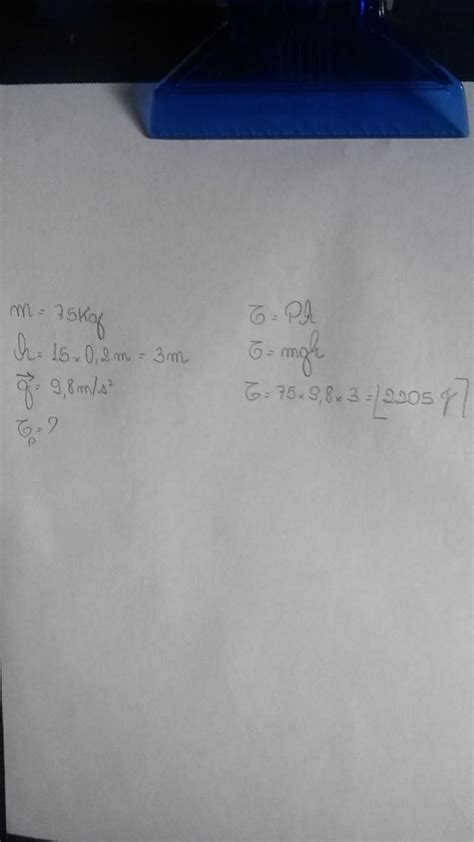 m = 75Kg
h = 15 × 0,2m = 3m
g⃗ = 9,8m/s²
τₚ = ?
τ = Ph
τ = mgh
τ = 75 × 9,8 × 3 = [2205 J]